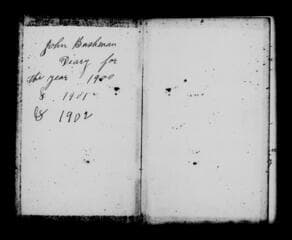 John Bashman
Diary for
the year 1900
& 1901
& 1902